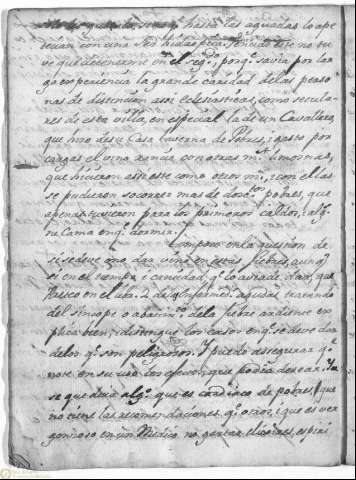 hasta las aguadas lo ape
tecian con una sed
ve que detenerme en el seg.o, porq.e savia por lar
ga experiencia la grande caridad de las perso
nas de distincion assi eclesiasticas, como secula
res de esta villa, en especial la de un Cavallero,
que hizo de su Casa taverna de Pobres, gasto por
cargas el vino rancio con otras m.s limosnas,
que hicieron assi este como otros m.s, con ellas
se pudieron socorrer mas de pobres, que
apenas tuvieron para los primeros caldos, i alg.s
ni Cama en q.e dormir.
Tampoco entro en la question de
si se deve o no dar vino en estas fiebres, aunq.e
si en el tiempo, i cantidad q.e lo avia de dar, que
en el lib. 2 de aguda, tratando
del sincope de la fiebre ardiente ex
plica bien, i distingue los casos en q.e se deve dar
de los q.e son peligrosos. Y puedo assegurar q.e
note en su uso los efectos que podia desear. Ya
se que dirà alg.o que es cardiaco de pobres, que
no tiene las recomendaciones q.e otros, i que es ver
gonzoso en un Medico no gastar elixires, espiri